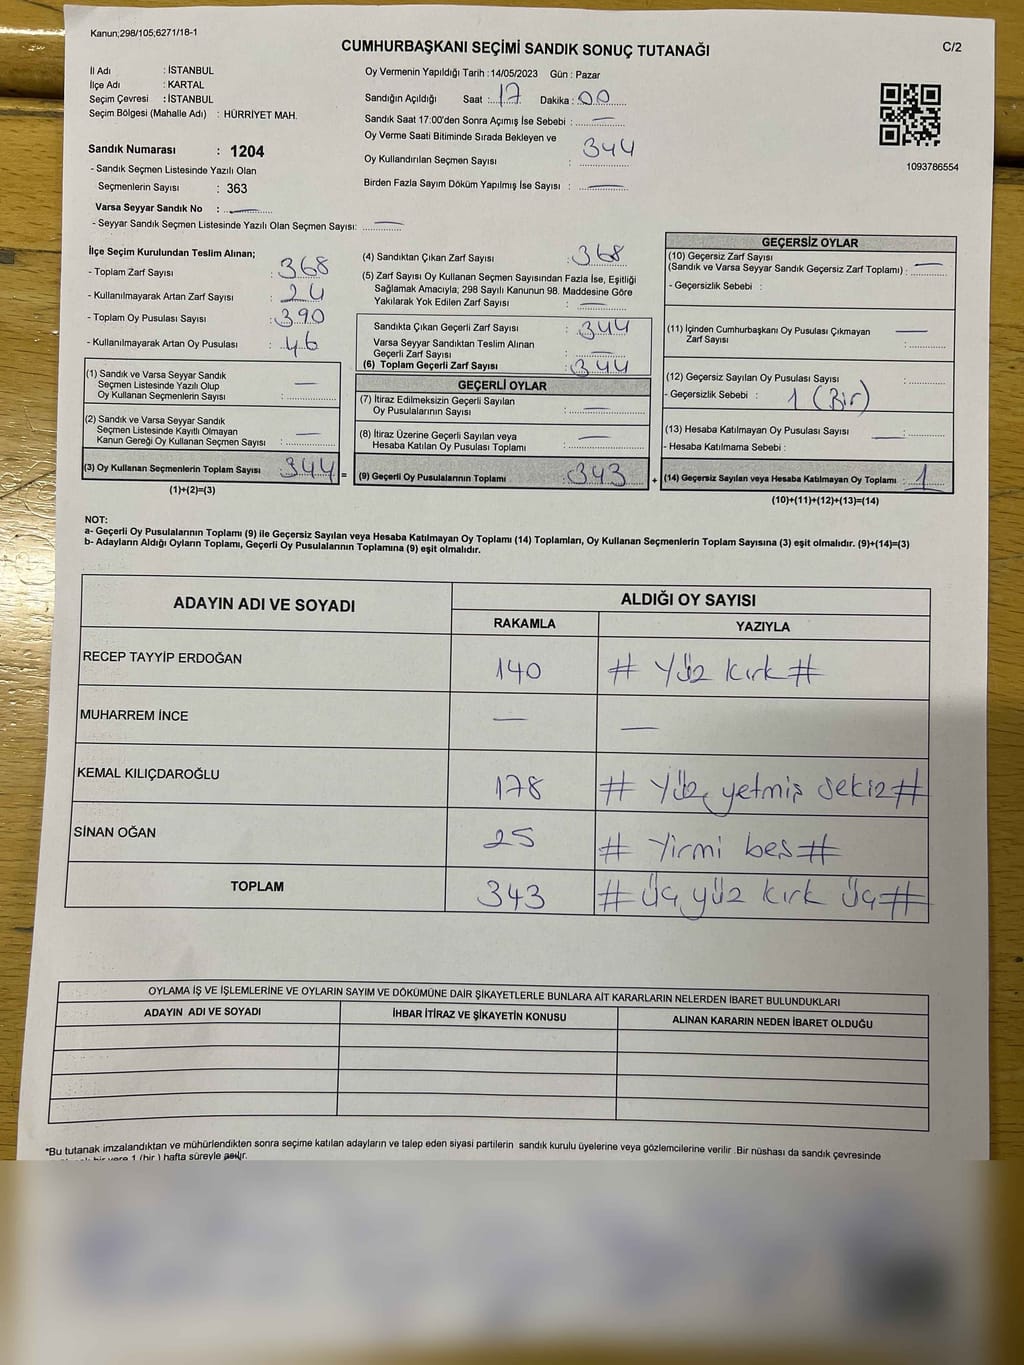 Kanun;298/105;6271/18-1
CUMHURBAŞKANI SEÇİMİ SANDIK SONUÇ TUTANAĞI
C/2
İl Adı : İSTANBUL
İlçe Adı : KARTAL
Seçim Çevresi : İSTANBUL
Seçim Bölgesi (Mahalle Adı) : HÜRRİYET MAH.
Sandık Numarası : 1204
- Sandık Seçmen Listesinde Yazılı Olan
Seçmenlerin Sayısı : 363
Varsa Seyyar Sandık No : —
- Seyyar Sandık Seçmen Listesinde Yazılı Olan Seçmen Sayısı: —
Oy Vermenin Yapıldığı Tarih : 14/05/2023 Gün : Pazar
Sandığın Açıldığı Saat : 17 Dakika : 00
Sandık Saat 17:00'den Sonra Açımış İse Sebebi : —
Oy Verme Saati Bitiminde Sırada Bekleyen ve
Oy Kullandırılan Seçmen Sayısı : 344
Birden Fazla Sayım Döküm Yapılmış İse Sayısı : —
1093786554
İlçe Seçim Kurulundan Teslim Alınan;
- Toplam Zarf Sayısı : 368
- Kullanılmayarak Artan Zarf Sayısı : 24
- Toplam Oy Pusulası Sayısı : 390
- Kullanılmayarak Artan Oy Pusulası : 46
(1) Sandık ve Varsa Seyyar Sandık
Seçmen Listesinde Yazılı Olup
Oy Kullanan Seçmenlerin Sayısı : —
(2) Sandık ve Varsa Seyyar Sandık
Seçmen Listesinde Kayıtlı Olmayan
Kanun Gereği Oy Kullanan Seçmen Sayısı : —
(3) Oy Kullanan Seçmenlerin Toplam Sayısı : 344 =
(1)+(2)=(3)
(4) Sandıktan Çıkan Zarf Sayısı : 368
(5) Zarf Sayısı Oy Kullanan Seçmen Sayısından Fazla İse, Eşitliği
Sağlamak Amacıyla; 298 Sayılı Kanunun 98. Maddesine Göre
Yakılarak Yok Edilen Zarf Sayısı : —
Sandıkta Çıkan Geçerli Zarf Sayısı : 344
Varsa Seyyar Sandıktan Teslim Alınan
Geçerli Zarf Sayısı : —
(6) Toplam Geçerli Zarf Sayısı : 344
GEÇERLİ OYLAR
(7) İtiraz Edilmeksizin Geçerli Sayılan
Oy Pusulalarının Sayısı : —
(8) İtiraz Üzerine Geçerli Sayılan veya
Hesaba Katılan Oy Pusulası Toplamı : —
(9) Geçerli Oy Pusulalarının Toplamı : 343 +
GEÇERSİZ OYLAR
(10) Geçersiz Zarf Sayısı
(Sandık ve Varsa Seyyar Sandık Geçersiz Zarf Toplamı) : —
- Geçersizlik Sebebi :
(11) İçinden Cumhurbaşkanı Oy Pusulası Çıkmayan
Zarf Sayısı : —
(12) Geçersiz Sayılan Oy Pusulası Sayısı :
- Geçersizlik Sebebi : 1 (Bir)
(13) Hesaba Katılmayan Oy Pusulası Sayısı : —
- Hesaba Katılmama Sebebi :
(14) Geçersiz Sayılan veya Hesaba Katılmayan Oy Toplamı : 1
(10)+(11)+(12)+(13)=(14)
NOT:
a- Geçerli Oy Pusulalarının Toplamı (9) ile Geçersiz Sayılan veya Hesaba Katılmayan Oy Toplamı (14) Toplamları, Oy Kullanan Seçmenlerin Toplam Sayısına (3) eşit olmalıdır. (9)+(14)=(3)
b- Adayların Aldığı Oyların Toplamı, Geçerli Oy Pusulalarının Toplamına (9) eşit olmalıdır.
ADAYIN ADI VE SOYADI
ALDIĞI OY SAYISI
RAKAMLA YAZIYLA
RECEP TAYYİP ERDOĞAN 140 # Yüz kırk #
MUHARREM İNCE — —
KEMAL KILIÇDAROĞLU 178 # Yüz yetmiş sekiz #
SİNAN OĞAN 25 # Yirmi beş #
TOPLAM 343 # Üç yüz kırk üç #
OYLAMA İŞ VE İŞLEMLERİNE VE OYLARIN SAYIM VE DÖKÜMÜNE DAİR ŞİKAYETLERLE BUNLARA AİT KARARLARIN NELERDEN İBARET BULUNDUKLARI
ADAYIN ADI VE SOYADI İHBAR İTİRAZ VE ŞİKAYETİN KONUSU ALINAN KARARIN NEDEN İBARET OLDUĞU
*Bu tutanak imzalandıktan ve mühürlendikten sonra seçime katılan adayların ve talep eden siyasi partilerin sandık kurulu üyelerine veya gözlemcilerine verilir .Bir nüshası da sandık çevresinde
bir yere 1 (bir ) hafta süreyle asılır.